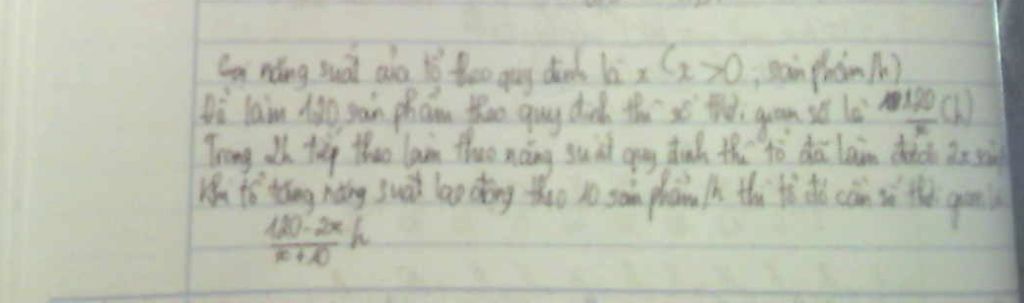 Gọi năng suất của tổ theo quy định là x (x > 0, sản phẩm/h)
Để làm 120 sản phẩm theo quy định thì số thời gian sẽ là 120/x (h)
Trong 2h tiếp theo làm theo năng suất quy định thì tổ đã làm được 2x sản
Khi tổ tăng năng suất lao động theo 10 sản phẩm/h thì tổ đó cần số thời gian là
120-2x/x+10 h